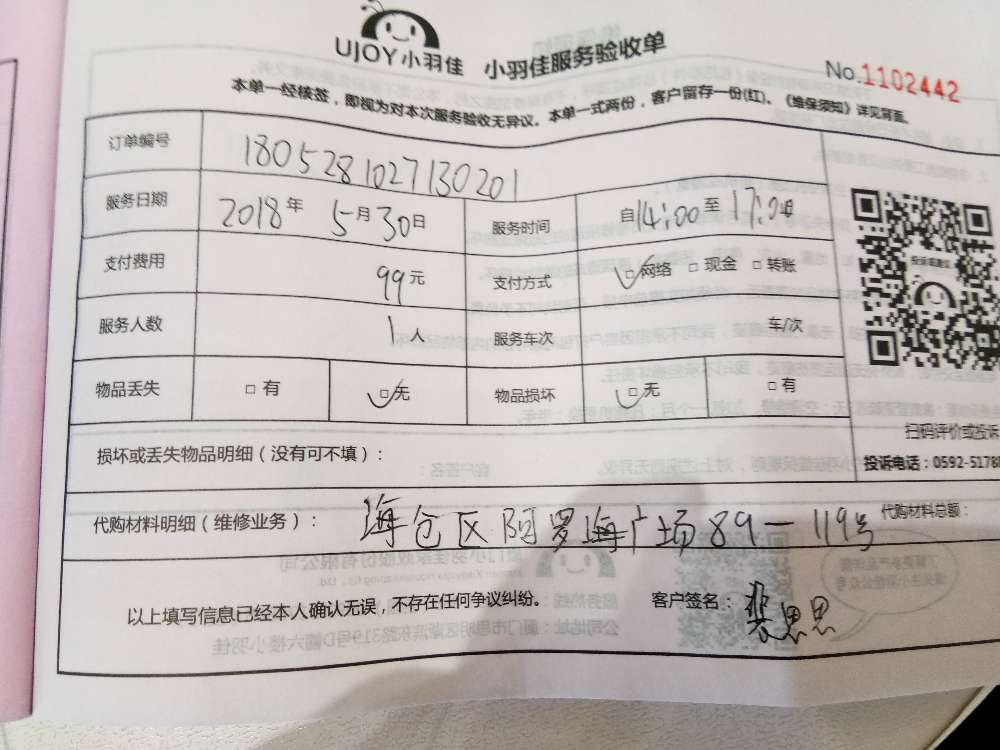 UJOY小羽佳 小羽佳服务验收单
No.1102442
本单一经核签，即视为对本次服务验收无异议。本单一式两份，客户留存一份(红)。《维保须知》详见背面。
订单编号 1805281027130201
服务日期 2018年 5月30日 服务时间 自14:00至17:00
支付费用 99元 支付方式 □网络 □现金 □转账
服务人数 1人 服务车次 车/次
物品丢失 □有 □无 物品损坏 □无 □有
扫码评价或投诉
损坏或丢失物品明细（没有可不填）：
投诉电话：0592-5178
代购材料明细（维修业务）： 海仓区阿罗海广场89—119号 代购材料总额：
以上填写信息已经本人确认无误，不存在任何争议纠纷。 客户签名： 裴思思